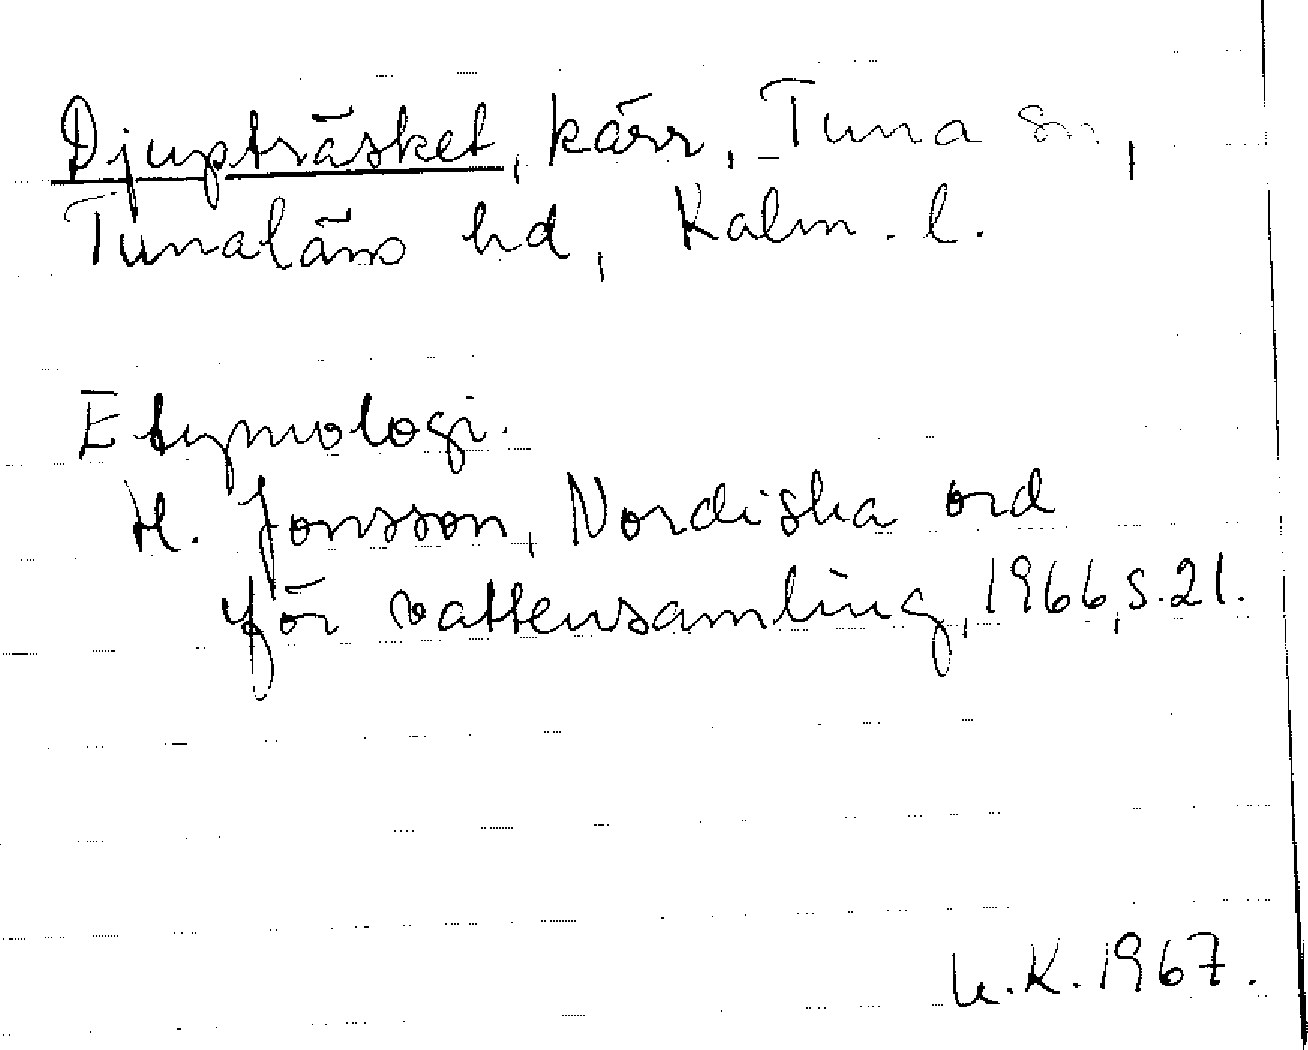 Djupträsket, kärr, Tuna sn,
Tunaläns hd, Kalm. l.
Etymologi.
H. Jonsson, Nordiska ord
för vattensamling, 1966, s. 21.
K. 1967.